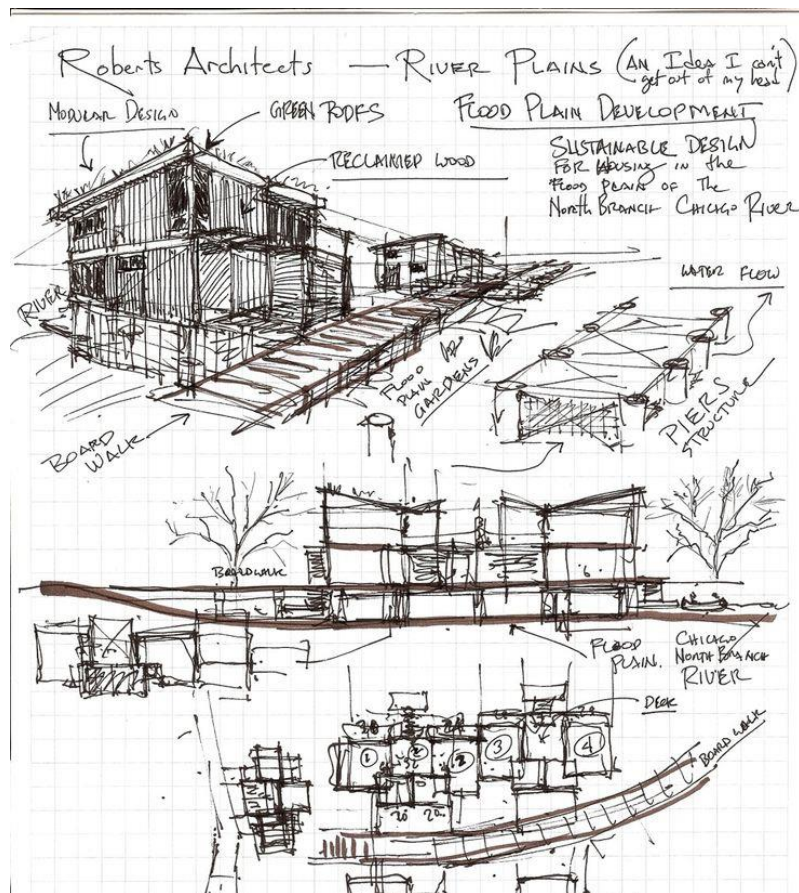 Roberts Architects — RIVER PLAINS (AN Idea I can't
get out of my head)
MODULAR DESIGN
GREEN ROOFS
FLOOD PLAIN DEVELOPMENT
RECLAIMED WOOD
SUSTAINABLE DESIGN
FOR HOUSING in the
FLOOD PLAIN OF The
NORTH BRANCH CHICAGO RIVER
WATER FLOW
RIVER
FLOOD
PLAIN
GARDENS
PIERS
STRUCTURE
BOARD
WALK
BOARDWALK
FLOOD
PLAIN.
CHICAGO
NORTH BRANCH
RIVER
DECK
BOARDWALK
1
2
3
4
20 20